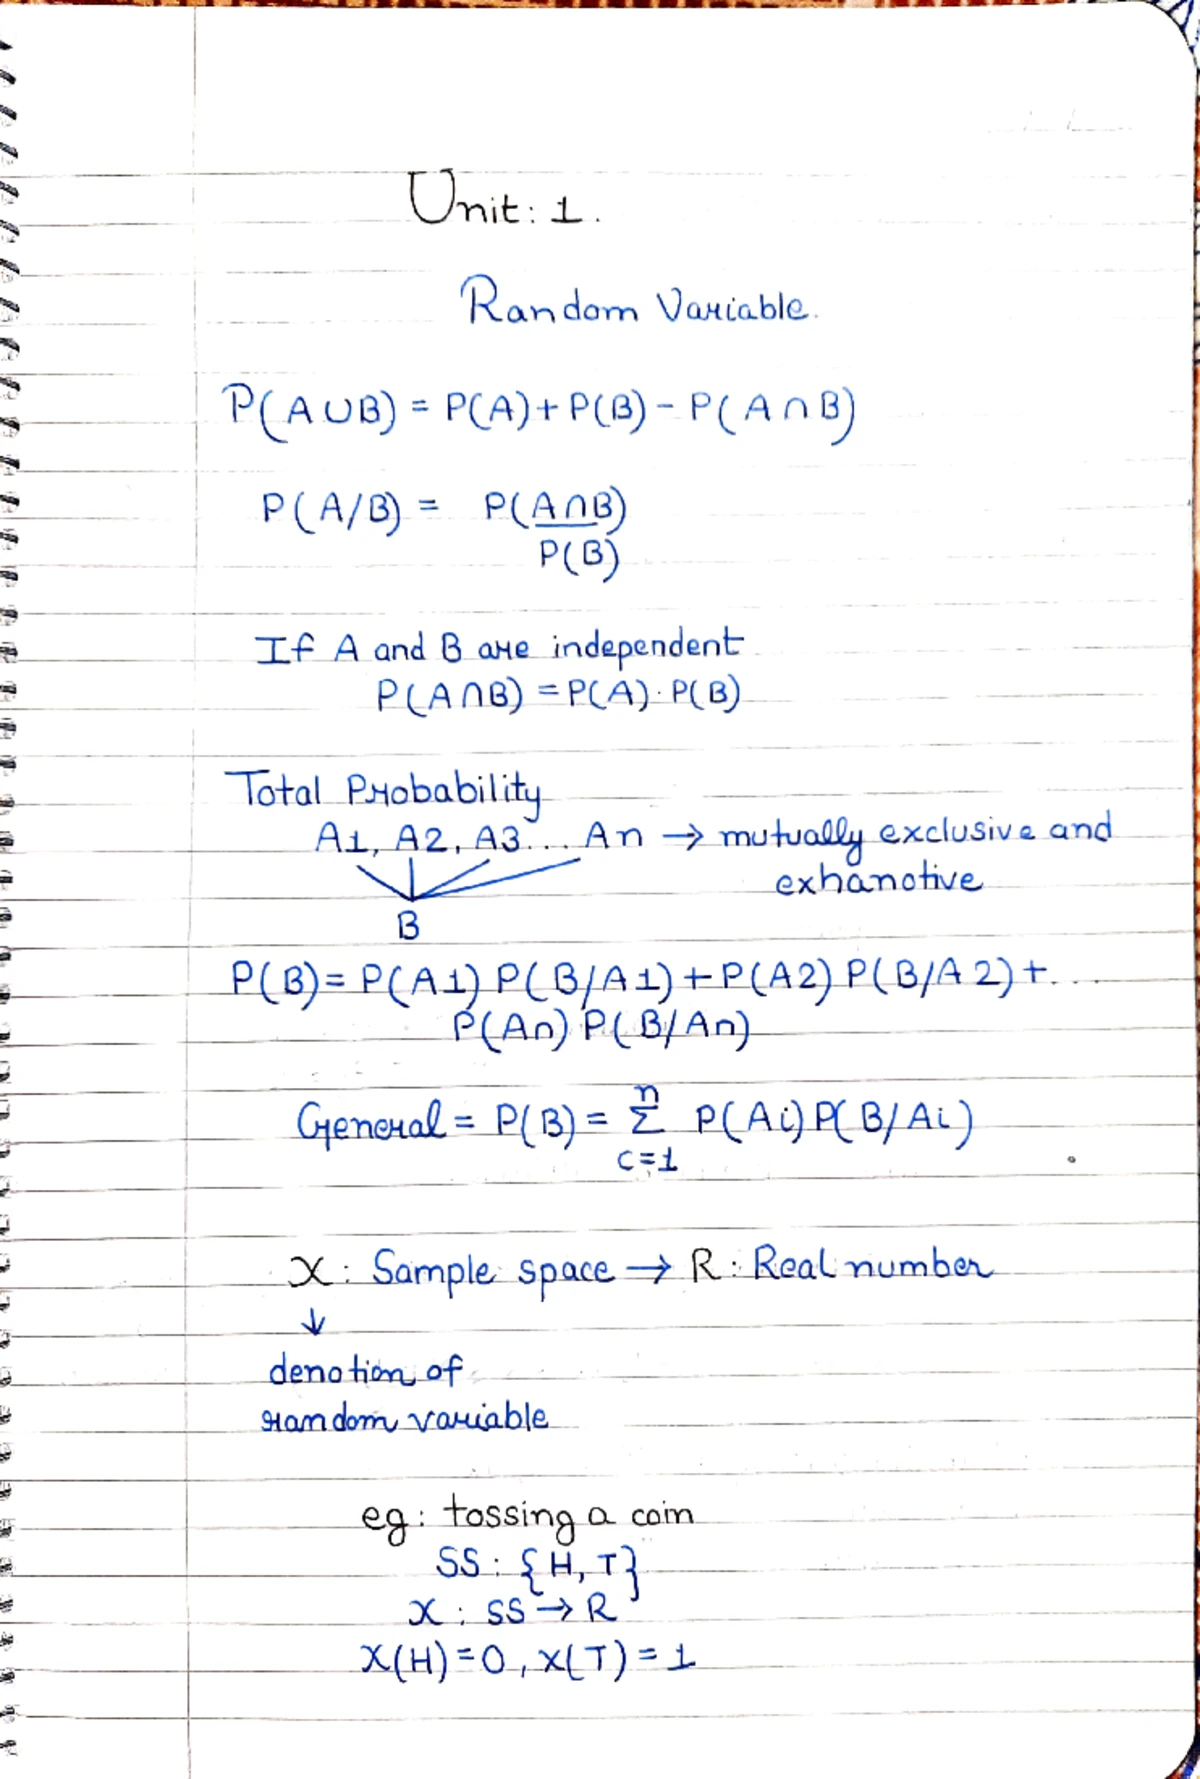 Unit: 1.
Random Variable.
P(A∪B) = P(A) + P(B) - P(A∩B)
P(A/B) = P(A∩B)
P(B)
If A and B are independent
P(A∩B) = P(A). P(B)
Total Probability
A1, A2, A3... An → mutually exclusive and
exhanotive
B
P(B) = P(A1) P(B/A1) + P(A2) P(B/A2) + ....
P(An) P(B/An)
General = P(B) = n Σ c=1 P(Ai) P(B/Ai)
X : Sample space → R : Real number
↓
denotion of
random variable
eg : tossing a coin
SS : {H, T}
X : SS → R
X(H) = 0, X(T) = 1